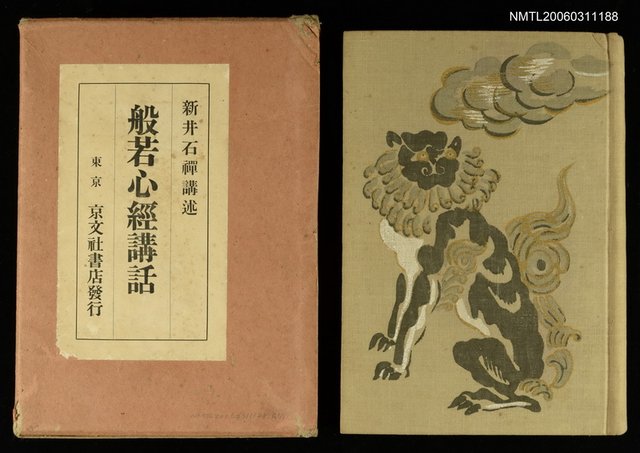 NMTL20060311188
新井石禪講述
般若心經講話
東京 京文社書店發行